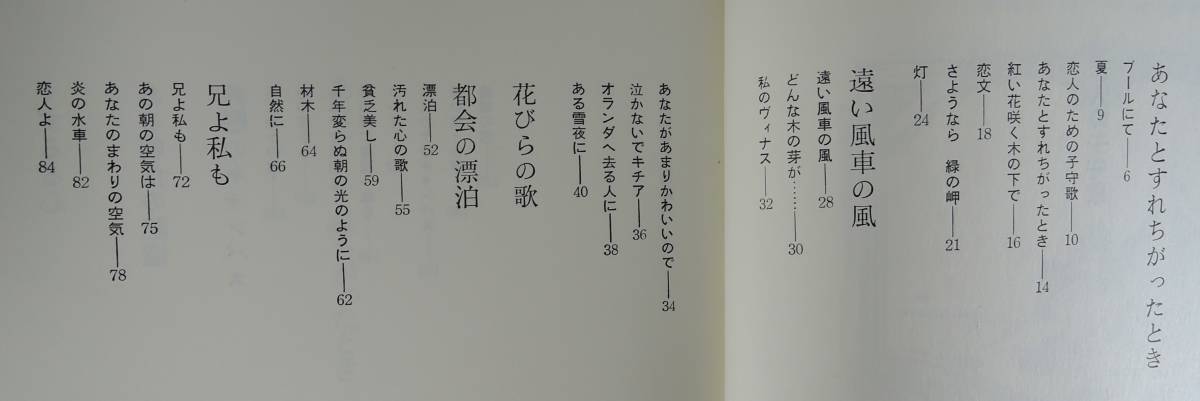 あなたとすれちがったとき
プールにて――6
夏――9
恋人のための子守歌――10
あなたとすれちがったとき――14
紅い花咲く木の下で――16
恋文――18
さようなら　緑の岬――21
灯――24
遠い風車の風
遠い風車の風――28
どんな木の芽が……――30
私のヴィナス――32
あなたがあまりかわいいので――34
泣かないでキチア――36
オランダへ去る人に――38
ある雪夜に――40
花びらの歌
都会の漂泊
漂泊――52
汚れた心の歌――55
貧乏美し――59
千年変らぬ朝の光のように――62
材木――64
自然に――66
兄よ私も
兄よ私も――72
あの朝の空気は――75
あなたのまわりの空気――78
炎の水車――82
恋人よ――84